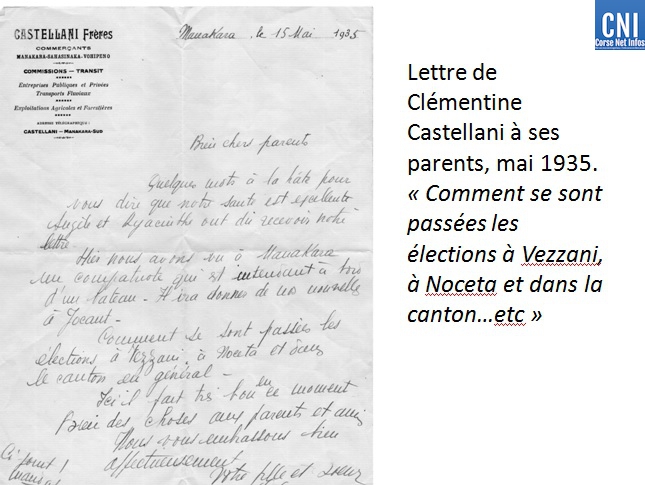 CASTELLANI Frères
COMMERÇANTS
MANAKARA-SAHASINAKA-VOHIPENO
COMMISSIONS — TRANSIT
Entreprises Publiques et Privées
Transports Fluviaux
Exploitations Agricoles et Forestières
ADRESSE TÉLÉGRAPHIQUE :
CASTELLANI — MANAKARA-SUD
Manakara, le 15 Mai 1935
Bien chers parents
Quelques mots à la hâte pour
vous dire que notre santé est excellente
Angèle et Hyacinthe ont dû recevoir notre
lettre.
Hier nous avons vu à Manakara
un compatriote qui est à bord
d'un bateau - Il ira donner de nos nouvelles
à
Comment se sont passées les
élections à Vezzani, à Noceta et dans
le canton en général -
Ici il fait très bon en ce moment
Bien des choses aux parents et amis
Nous vous embrassons bien
affectueusement
Votre fille et soeur
Ci joint 1
mandat
CNI
Corse Net Infos
Lettre de
Clémentine
Castellani à ses
parents, mai 1935.
« Comment se sont
passées les
élections à Vezzani,
à Noceta et dans la
canton…etc »